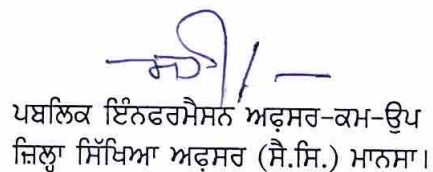 ਸਹੀ/-
ਪਬਲਿਕ ਇੰਨਫਰਮੈਸਨ ਅਫ਼ਸਰ-ਕਮ-ਉਪ
ਜ਼ਿਲ੍ਹਾ ਸਿੱਖਿਆ ਅਫ਼ਸਰ (ਸੈ.ਸਿ.) ਮਾਨਸਾ।